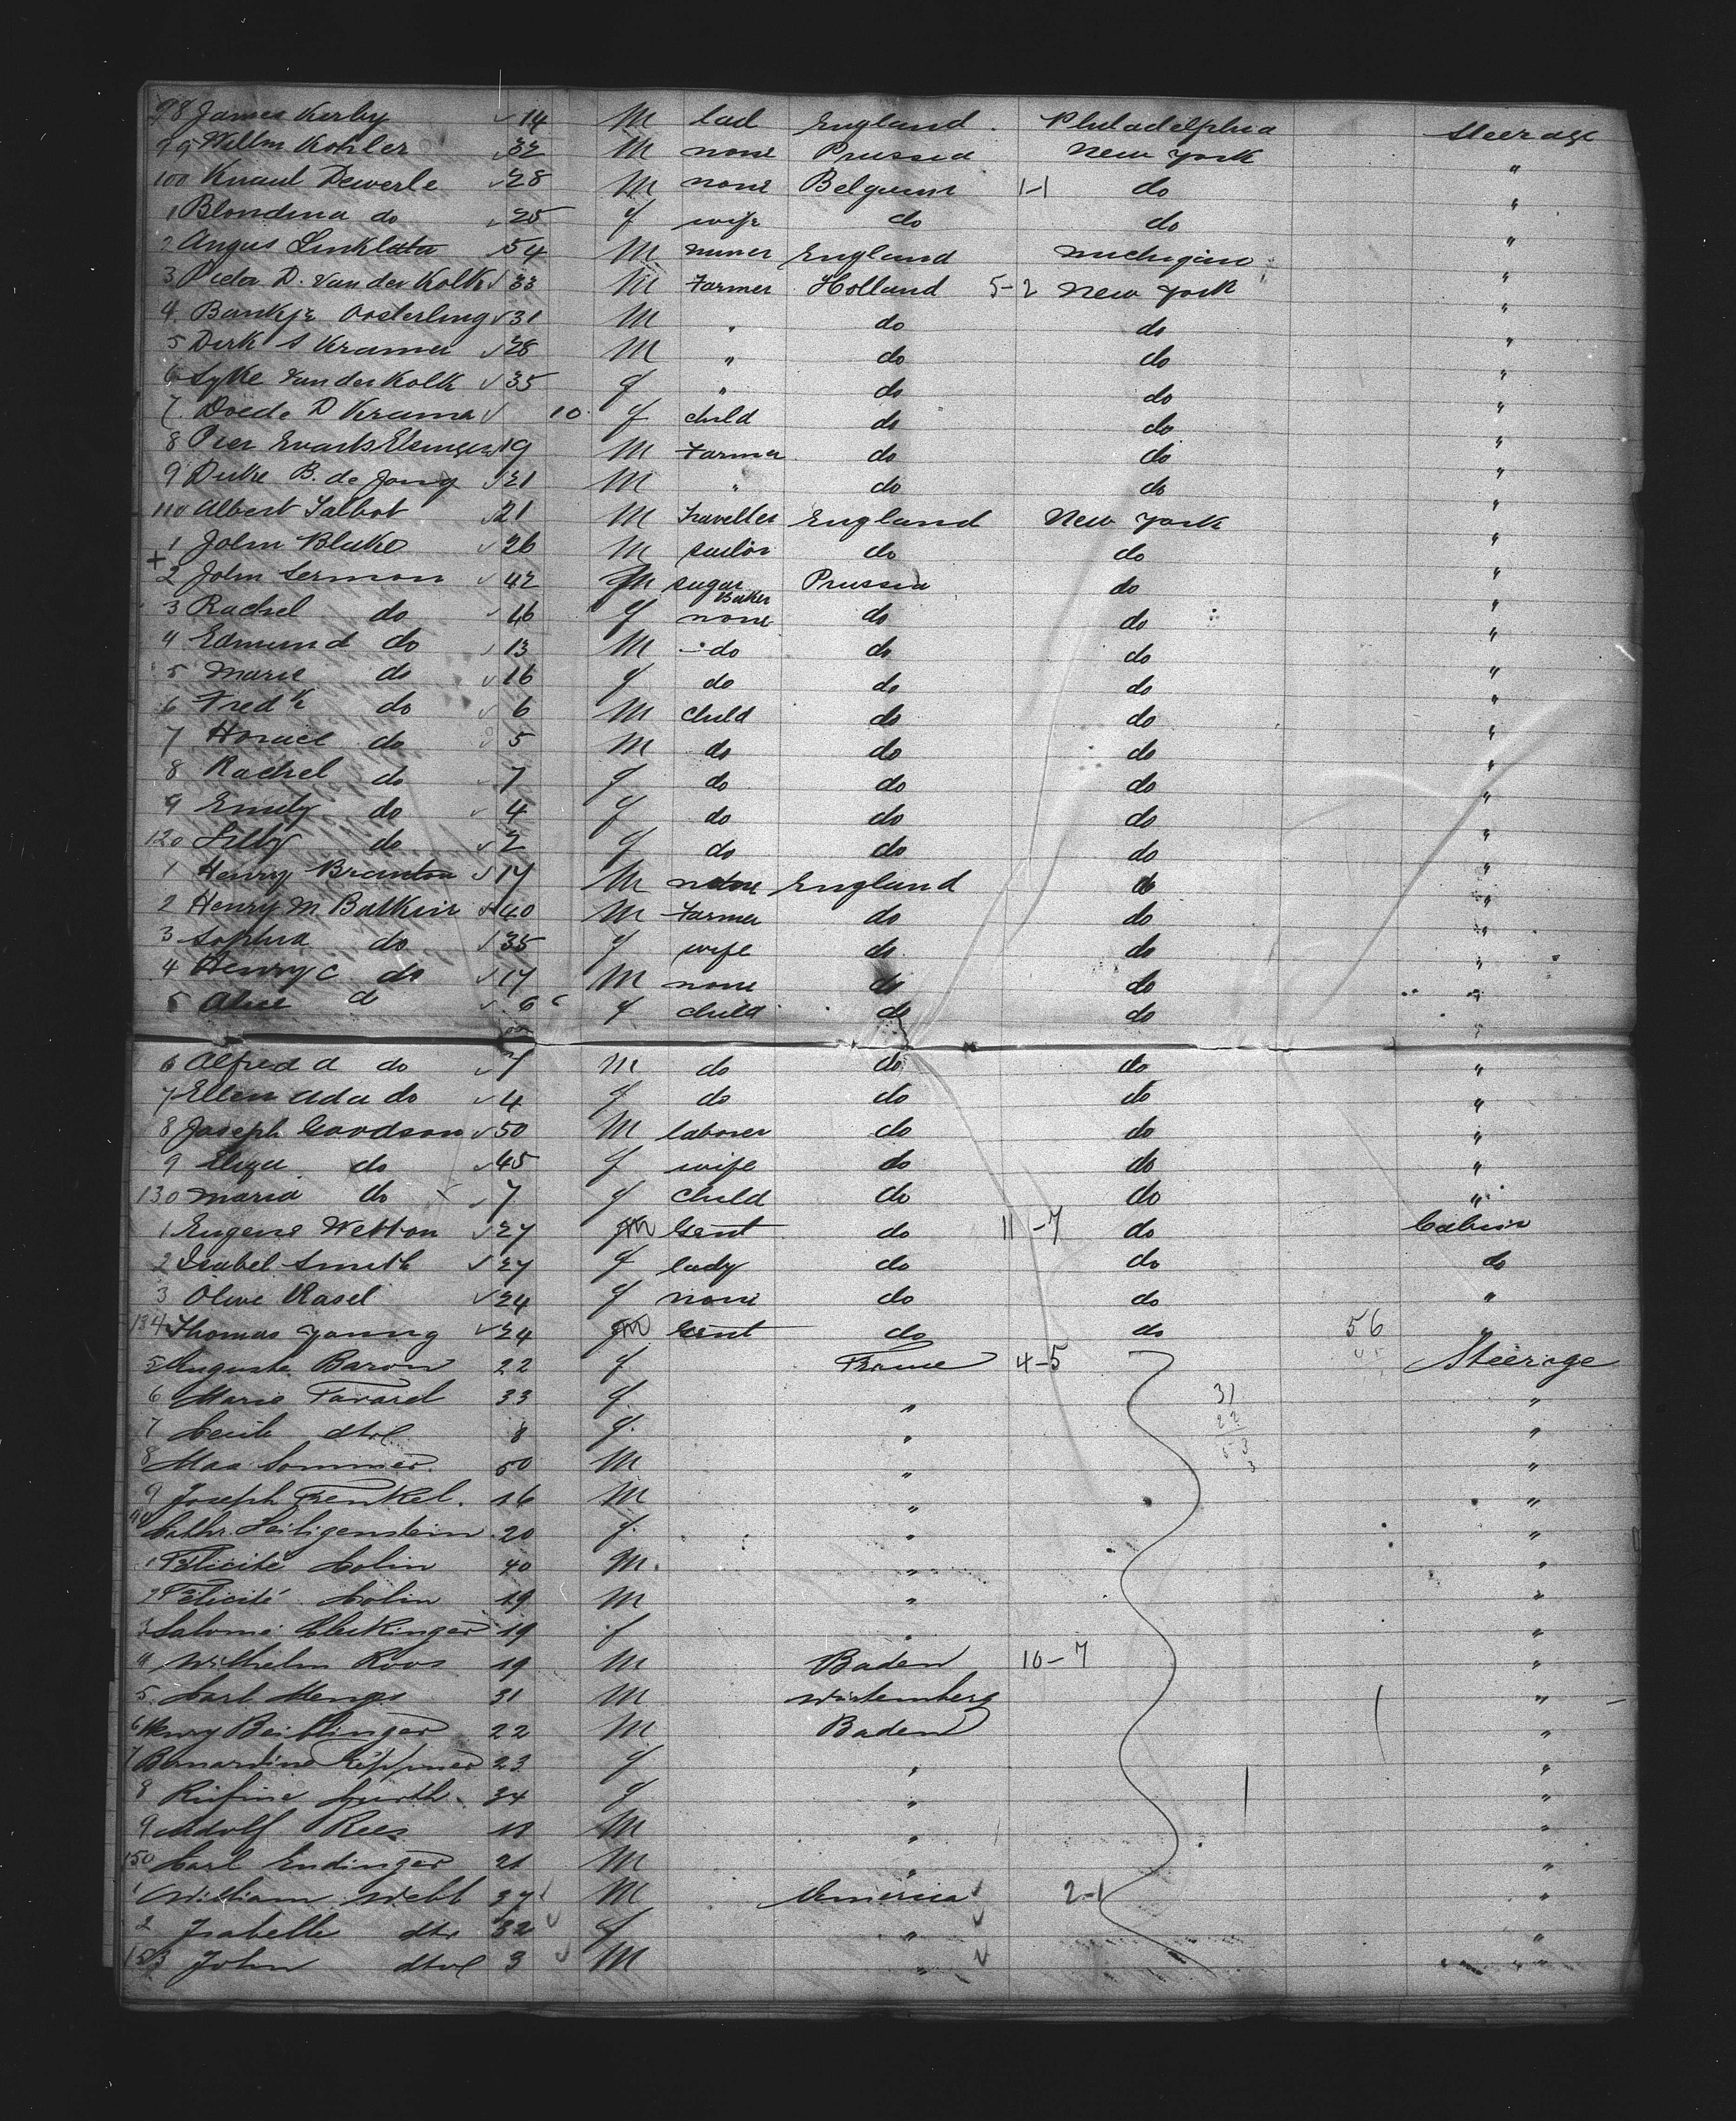 98 James Kerby 14 M lad England Philadelphia Steerage
99 Willm Kohler 32 M none Prussia New York "
100 Knaut Dewerle 28 M none Belgium 1-1 do "
1 Blondina do 25 f wife do do "
2 Angus Linklater 54 M miner England Michigan "
3 Pieter D. Van der Kolk 33 M Farmer Holland 5-2 New York "
4 Bankje Oosterling 31 M " do do "
5 Derk S Kramer 28 M " do do "
6 Syke Van der Kolk 35 f " do do "
7 Doede D Kramer 10 f child do do "
8 Pier Evarts 19 M Farmer do do "
9 Duke B. de Jong 21 M " do do "
110 Albert Talbot 21 M Traveller England New York "
1 John Blake 26 M sailor do do "
+ 2 John Sermon 42 M sugar Baker Prussia do "
3 Rachel do 46 f none do do "
4 Edmund do 13 M do do do "
5 Marie do 16 f do do do "
6 Fredk do 6 M child do do "
7 Horace do 5 M do do do "
8 Rachel do 7 f do do do "
9 Emily do 4 f do do do "
120 Lilly do 2 f do do do "
1 Henry Branton 17 M none England do "
2 Henry M Batkin 40 M Farmer do do "
3 Sophia do 35 f wife do do "
4 Henry C do 17 M none do do "
5 Alice do 6 f child do do "
6 Alfred A do 7 M do do do "
7 Ellen Ada do 4 f do do do "
8 Joseph Goodson 50 M laborer do do "
9 Eliza do 45 f wife do do "
130 Maria do 7 f child do do "
1 Eugene Wetton 27 M Gent do 11-7 do Cabin
2 Isabel Smith 27 f lady do do do
3 Olive Rasel 24 f none do do "
134 Thomas Young 24 M Gent do do 56 "
5 Auguste Baron 22 f France 4-5 Steerage
6 Marie Favarel 33 f " 31 "
7 Cecile dto 8 f " 22 "
8 Max Sommer 50 M " 53 "
9 Joseph Frenkel 16 M " "
140 Cathr. Heiligenstein 20 f " "
1 Félicité Colin 40 M " "
2 Félicité Colin 19 M " "
3 Salome 19 f " "
4 Wilhelm Roos 19 M Baden 10-7 "
5 Carl Menges 31 M Würtemberg "
6 Henry Beitlinger 22 M Baden "
7 Bernardine 23 f " "
8 Rufine 34 f " "
9 Adolf Rees 18 M " "
150 Carl Endinger 21 M " "
1 William Webb 37 M America 2-1 "
2 Isabelle dto 32 f " "
153 John dto 3 M " "